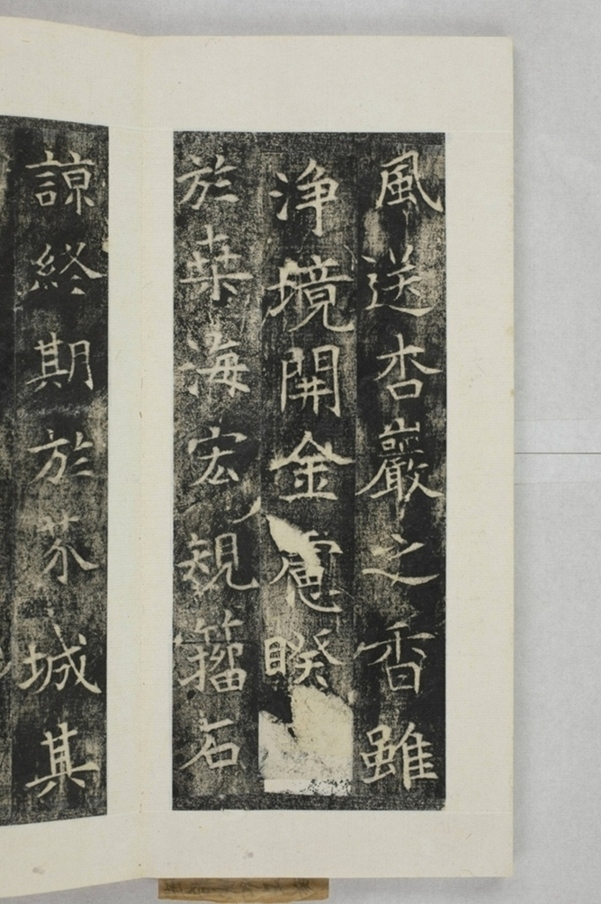 風送杏巖之香雖
淨境開金慮睽
於桒海宏規籀石
諒終期於芥城其